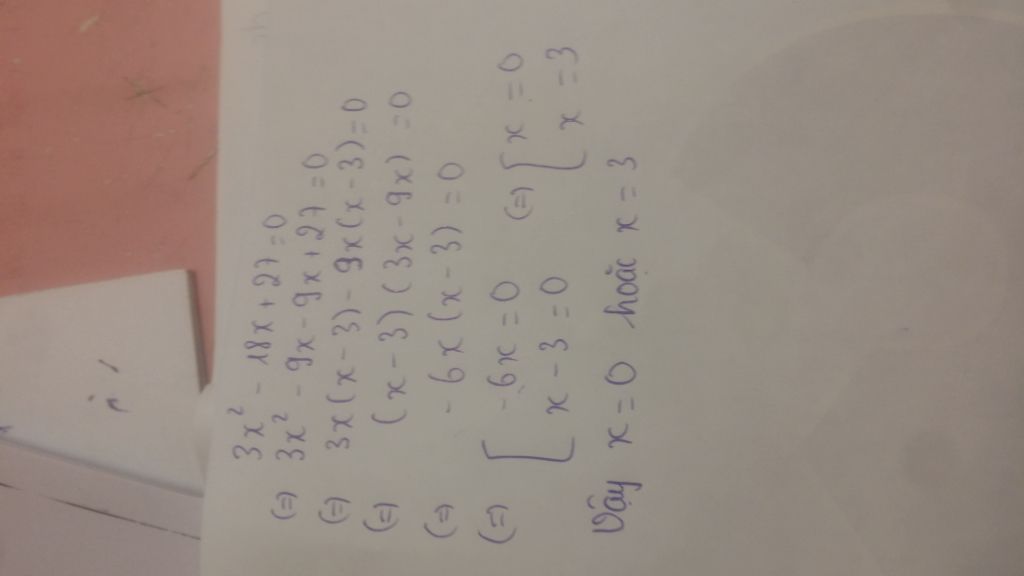 3x² - 18x + 27 = 0
(=) 3x² - 9x - 9x + 27 = 0
(=) 3x(x - 3) - 9x(x - 3) = 0
(=) (x - 3)(3x - 9x) = 0
(=) - 6x(x - 3) = 0
(=) [ - 6x = 0 (=) [ x = 0
x - 3 = 0 x = 3
Vậy x = 0 hoặc x = 3